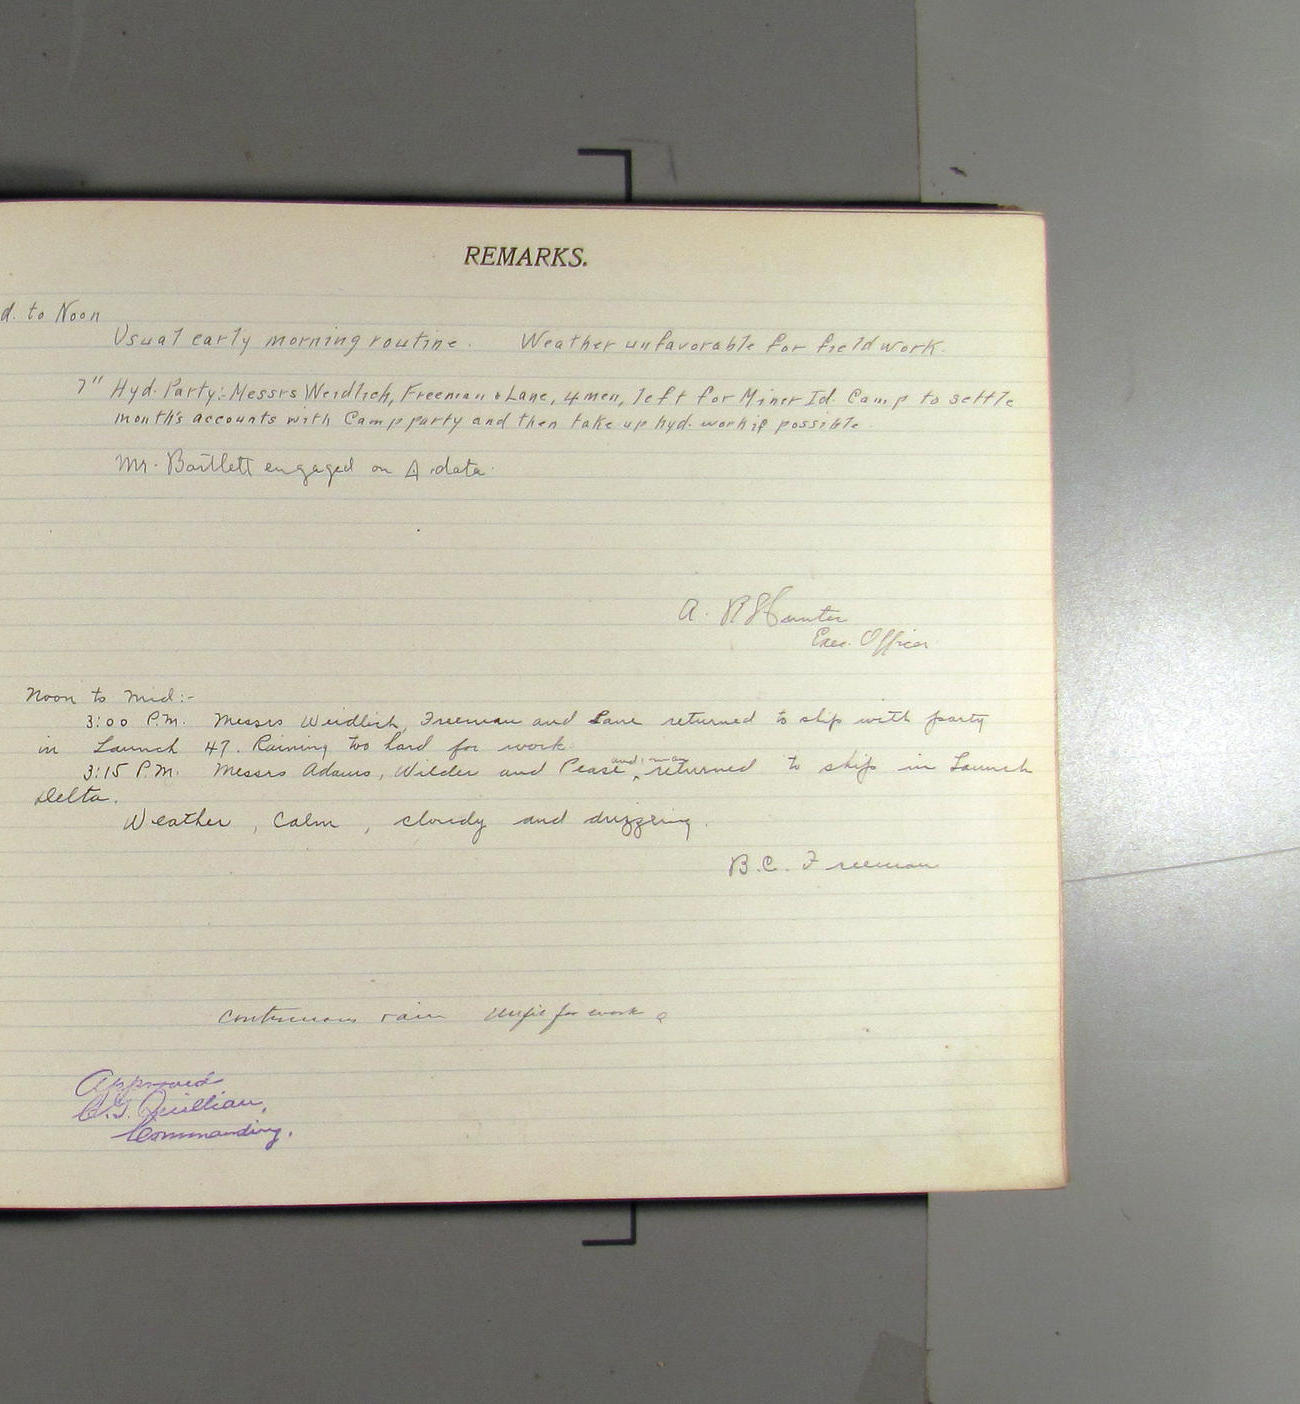 REMARKS.
d. to Noon
Usual early morning routine. Weather unfavorable for field work.
7" Hyd. Party:- Messrs Weidlich, Freeman & Lane, 4 men, left for Miner Id. Camp to settle
month's accounts with Camp party and then take up hyd. work if possible.
Mr. Bartlett engaged on Δ data.
A. P. Hunter
Exec. Officer
Noon to mid:-
3:00 P.M. Messrs Weidlich, Freeman and Lane returned to ship with party
in Launch 47. Raining too hard for work.
3:15 P.M. Messrs Adams, Wilder and Pease and man, returned to ship in Launch
Delta.
Weather, Calm, cloudy and drizzling.
B. C. Freeman
Continuous rain unfit for work
Approved
C.G. Quillian,
Commanding.